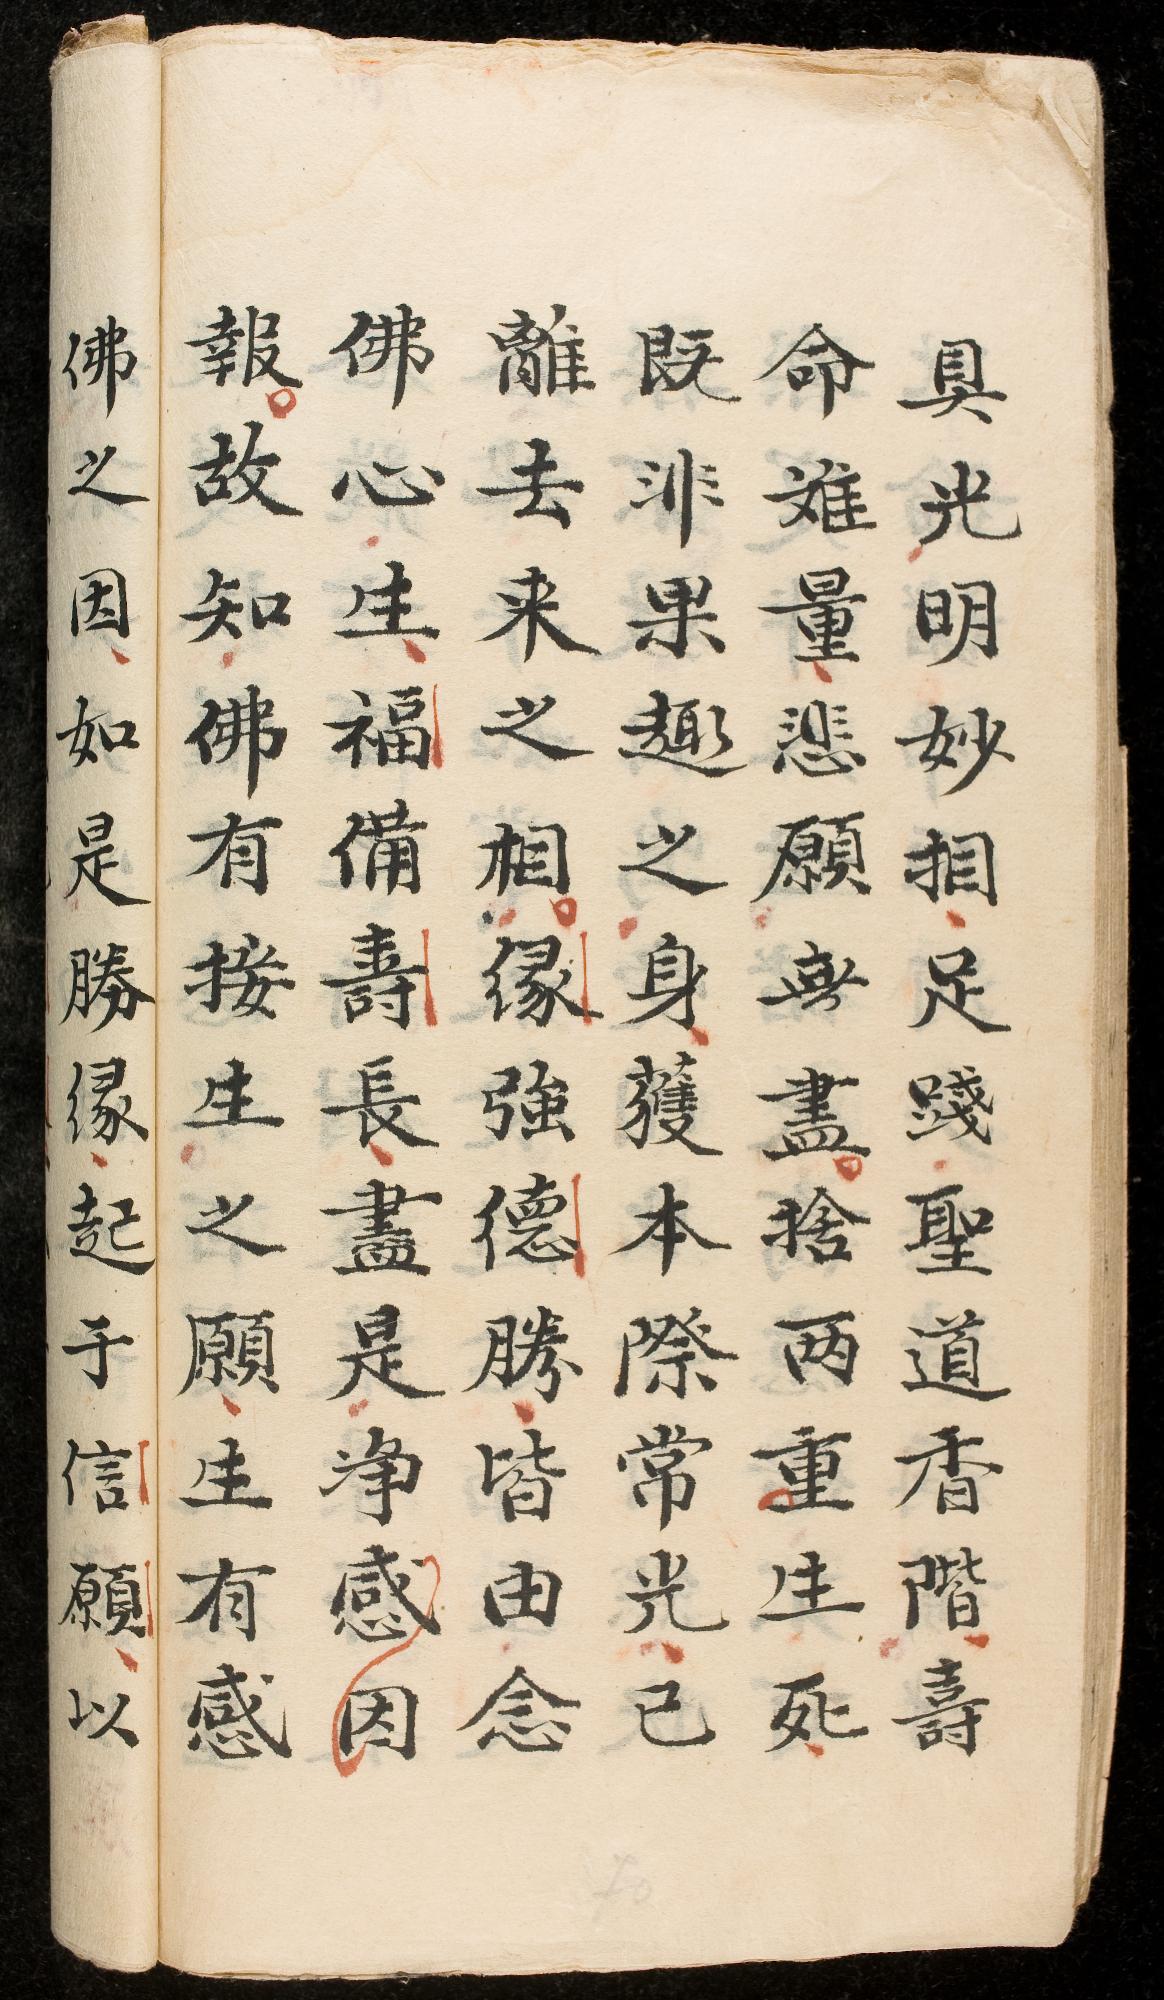 具光明妙相足踐聖道香階壽
命難量悲願無盡捨兩重生死
既非果趣之身獲本際常光已
離去来之相縁強德勝皆由念
佛心生福備壽長盡是净感因
報故知佛有接生之願生有感
佛之因如是勝縁起于信願以